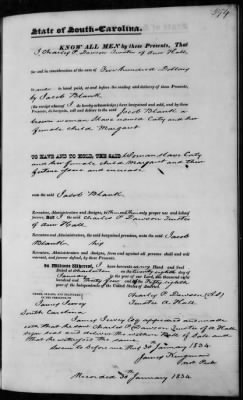 State of South-Carolina.
KNOW ALL MEN by these Presents, That
I Charles P. Dawson of Ann Hall
for and in consideration of the sum of Five hundred Dollars
to in hand paid, at and before the sealing and delivery of these Presents,
by Jacob Blank
(the receipt whereof I do hereby acknowledge) have bargained and sold, and by these
Presents, do bargain, sell and deliver to the said Jacob Blank a
brown woman Slave named Caty and her
female child Margaret
TO HAVE AND TO HOLD, THE SAID Woman slave Caty
and her female child Margaret and their
future issue and increase
unto the said Jacob Blank
Executors, Administrators and Assigns, to and their only proper use and behoof
forever. And I the said Charles P. Dawson
of Ann Hall
Executors and Administrators, the said bargained premises, unto the said Jacob
Blank his
Executors, Administrators and Assigns, from and against all persons shall and will
warrant, and forever defend, by these Presents.
In Witness Whereof, I have hereunto set my Hand and Seal
Dated at Charleston on the twenty eighth day of
January in the year of our Lord, one thousand eight
hundred and thirty four and in the fifty eighth
year of the Independence of the United States of America.
Charles P. Dawson (LS)
James Jervey
South Carolina
James Jervey appeared and made
oath that he saw Charles P. Dawson
sign seal and deliver the within Bill of Sale and
that he witnessed the same.
Sworn to before me this 30 January 1834
James
Recorded 30 January 1834